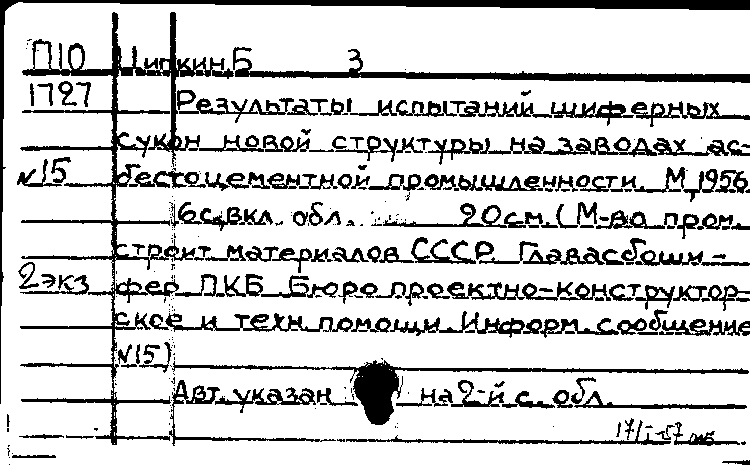 П10 Ципкин, Б 3
1727 Результаты испытаний шиферных
сукон новой структуры на заводах ас-
№15 бестоцементной промышленности. М, 1956
6с, вкл. обл. 20см. (М-во пром.
строит материалов СССР. Главасбоши-
2экз фер ПКБ Бюро проектно-конструктор-
ское и техн помощи. Информ. сообщение
№15)
Авт. указан на 2-й с. обл.
17/I-57